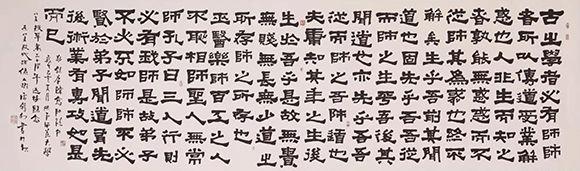 古之學者必有師師
者所以傳道受業解
惑也人非生而知之
者孰能無惑惑而不
從師其為惑也終不
解矣生乎吾前其聞
道也固先乎吾吾從
而師之生乎吾後其
聞道也亦先乎吾吾
從而師之吾師道也
夫庸知其年之先後
生於吾乎是故無貴
無賤無長無少道之
所存師之所存也
巫醫樂師百工之人
不恥相師聖人無常
師孔子曰三人行則
必有我師是故弟子
不必不如師師不必
賢於弟子聞道有先
後術業有專攻如是
而已